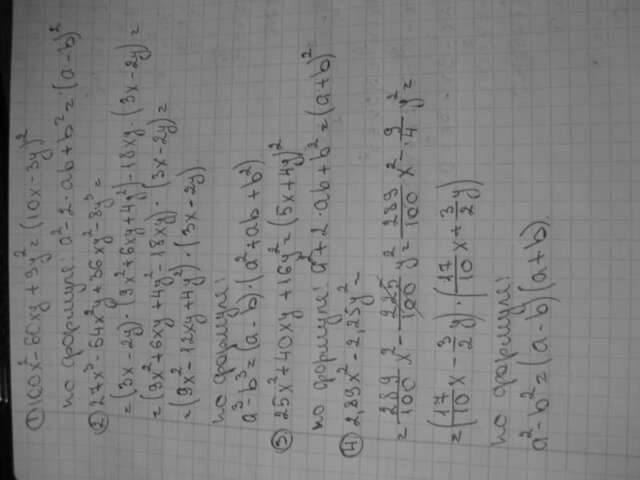 ① 100x²-60xy+9y²=(10x-3y)²
по формуле: a²-2·ab+b²=(a-b)²
② 27x³-54x²y+36xy²-8y³=
=(3x-2y)·(9x²+6xy+4y²)-18xy·(3x-2y)=
=(9x²+6xy+4y²-18xy)·(3x-2y)=
=(9x²-12xy+4y²)·(3x-2y)
по формуле:
a³-b³=(a-b)·(a²+ab+b²)
③ 25x²+40xy+16y²=(5x+4y)²
по формуле: a²+2·ab+b²=(a+b)²
④ 2,89x²-2,25y²=
=289/100 x²-225/100 y²=289/100 x²-9/4 y²=
=(17/10 x-3/2 y)·(17/10 x+3/2 y)
по формуле:
a²-b²=(a-b)(a+b).